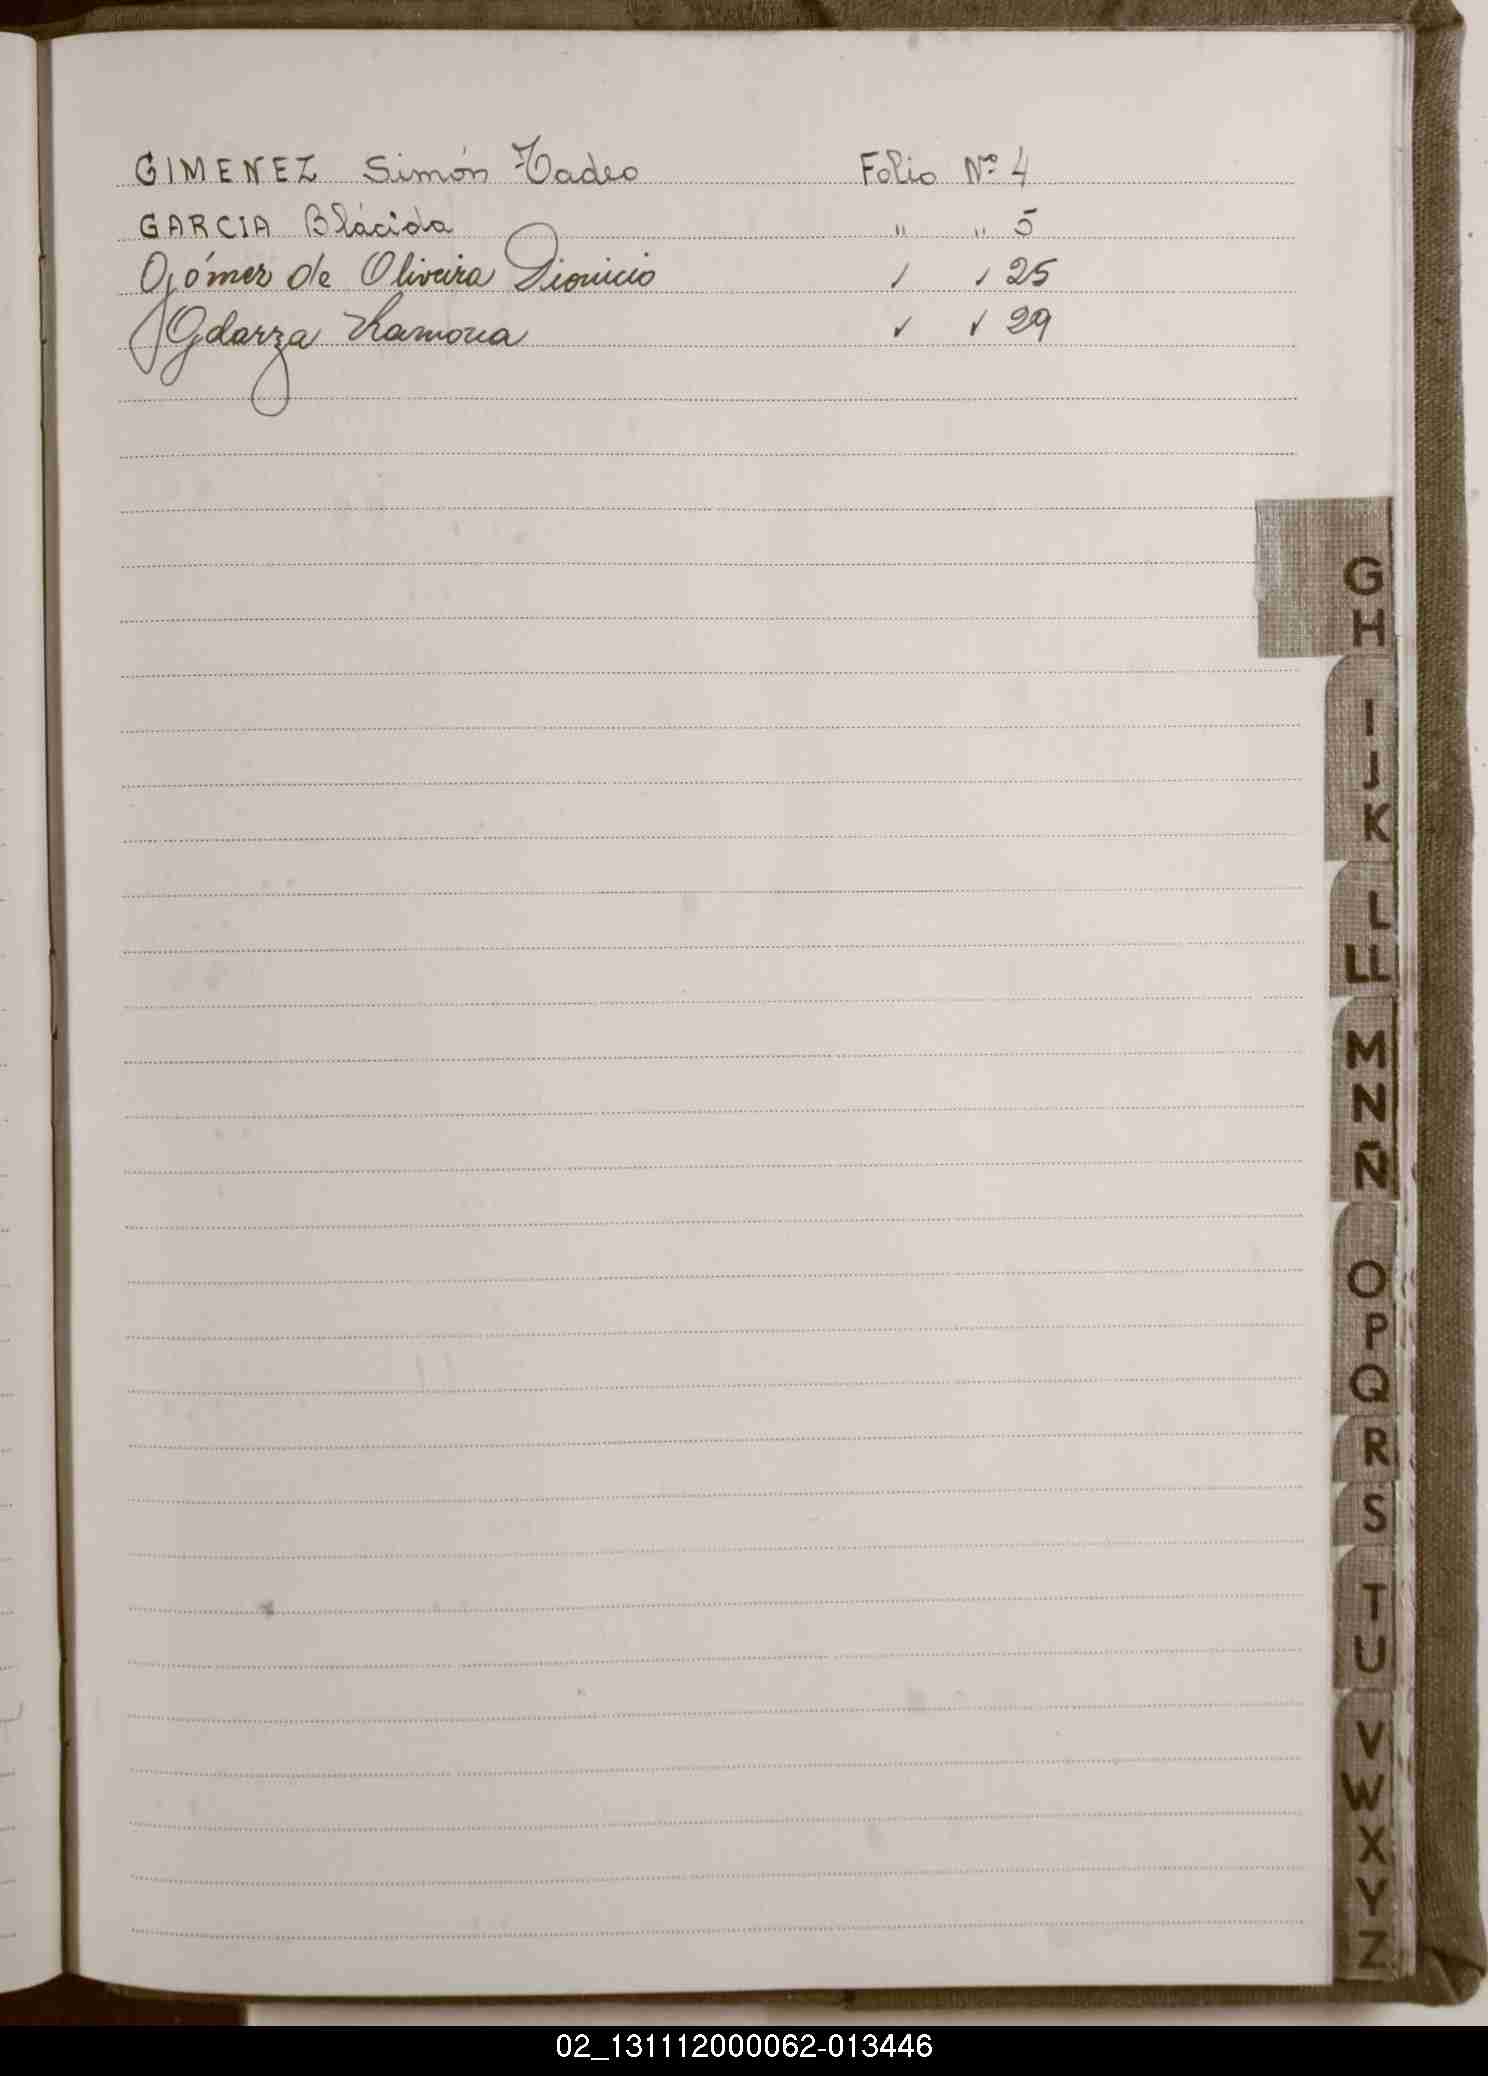 GIMENEZ Simón Tadeo Folio Nº 4
GARCIA Plácida " " 5
Gómez de Oliveira Dionicio " " 25
Ramona " " 29
G
H
I
J
K
L
LL
M
N
Ñ
O
P
Q
R
S
T
U
V
W
X
Y
Z
02_131112000062-013446